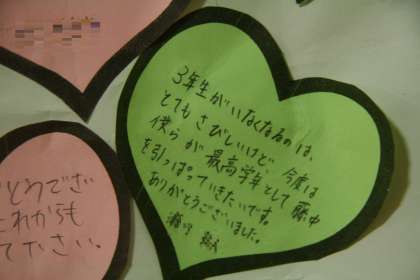 3年生がいなくなるのは、
とてもさびしいけど、今度は
僕らが最高学年として藤中
を引っぱっていきたいです。
ありがとうございました。
とうござい
これからも
て下さい。